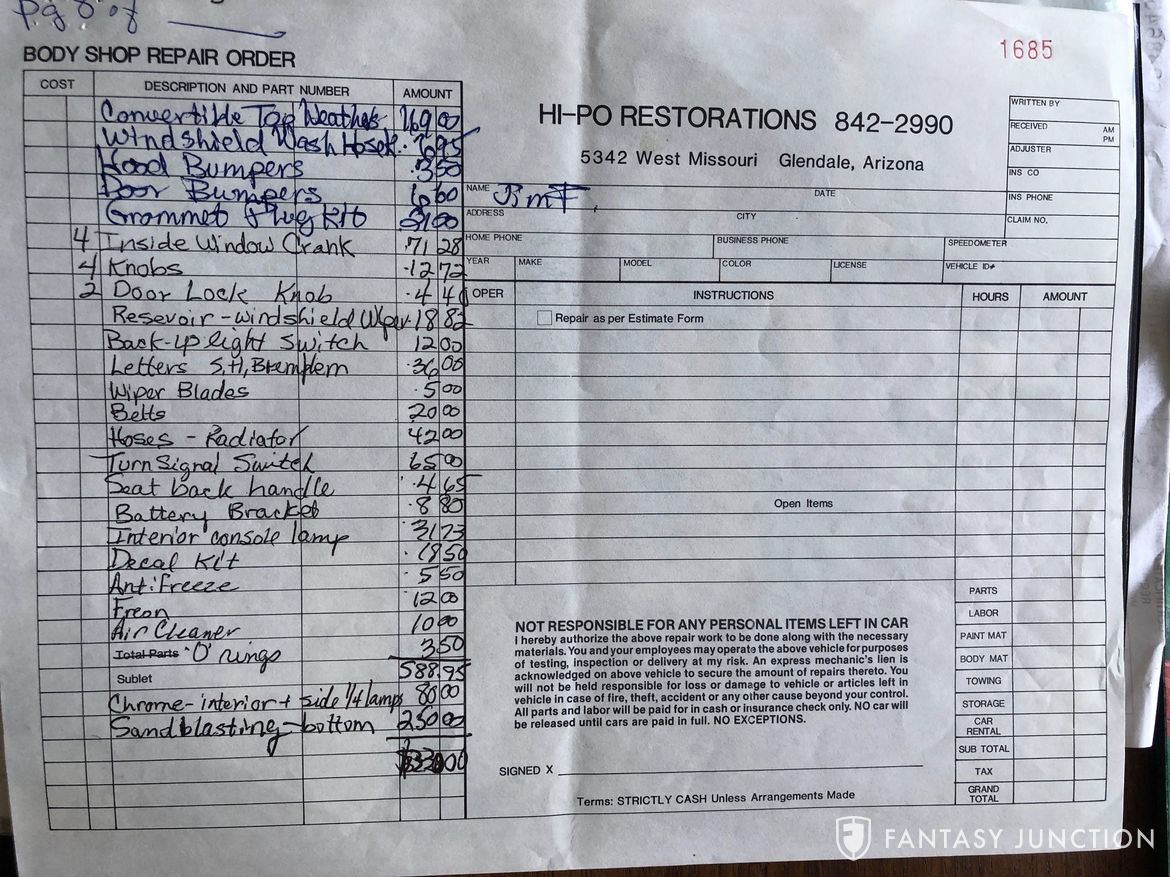 pg 8 of
1685
BODY SHOP REPAIR ORDER
COST DESCRIPTION AND PART NUMBER AMOUNT
Convertible Top Weathers 169 00
Windshield Wash Hose 6 95
Hood Bumpers 3 50
Door Bumpers 6 60
Grommet Plug Kit 00
4 Inside Window Crank 71 28
4 Knobs 12 72
2 Door Lock Knob 4 40
Resevoir - windshield Wiper 18 82
Back-up light switch 12 00
Letters S, H, 36 00
Wiper Blades 5 00
Belts 20 00
Hoses - Radiator 42 00
Turn Signal Switch 65 00
Seat back handle 4 65
Battery Bracket 8 80
Interior console lamp 31 73
Decal Kit 18 50
Anti Freeze 5 50
Freon 12 00
Air Cleaner 10 00
Total Parts "O" rings 3 50
588.95
Sublet
Chrome - interior + side 1/4 lamps 80 00
Sandblasting - bottom 250 00
$330 00
HI-PO RESTORATIONS 842-2990
5342 West Missouri Glendale, Arizona
WRITTEN BY
RECEIVED AM PM
ADJUSTER
INS CO
INS PHONE
CLAIM NO.
NAME DATE
ADDRESS CITY
HOME PHONE BUSINESS PHONE SPEEDOMETER
YEAR MAKE MODEL COLOR LICENSE VEHICLE ID#
OPER INSTRUCTIONS HOURS AMOUNT
Repair as per Estimate Form
Open Items
PARTS
LABOR
PAINT MAT
BODY MAT
TOWING
STORAGE
CAR RENTAL
SUB TOTAL
TAX
GRAND TOTAL
NOT RESPONSIBLE FOR ANY PERSONAL ITEMS LEFT IN CAR
I hereby authorize the above repair work to be done along with the necessary
materials. You and your employees may operate the above vehicle for purposes
of testing, inspection or delivery at my risk. An express mechanic's lien is
acknowledged on above vehicle to secure the amount of repairs thereto. You
will not be held responsible for loss or damage to vehicle or articles left in
vehicle in case of fire, theft, accident or any other cause beyond your control.
All parts and labor will be paid for in cash or insurance check only. NO car will
be released until cars are paid in full. NO EXCEPTIONS.
SIGNED X
Terms: STRICTLY CASH Unless Arrangements Made
FANTASY JUNCTION